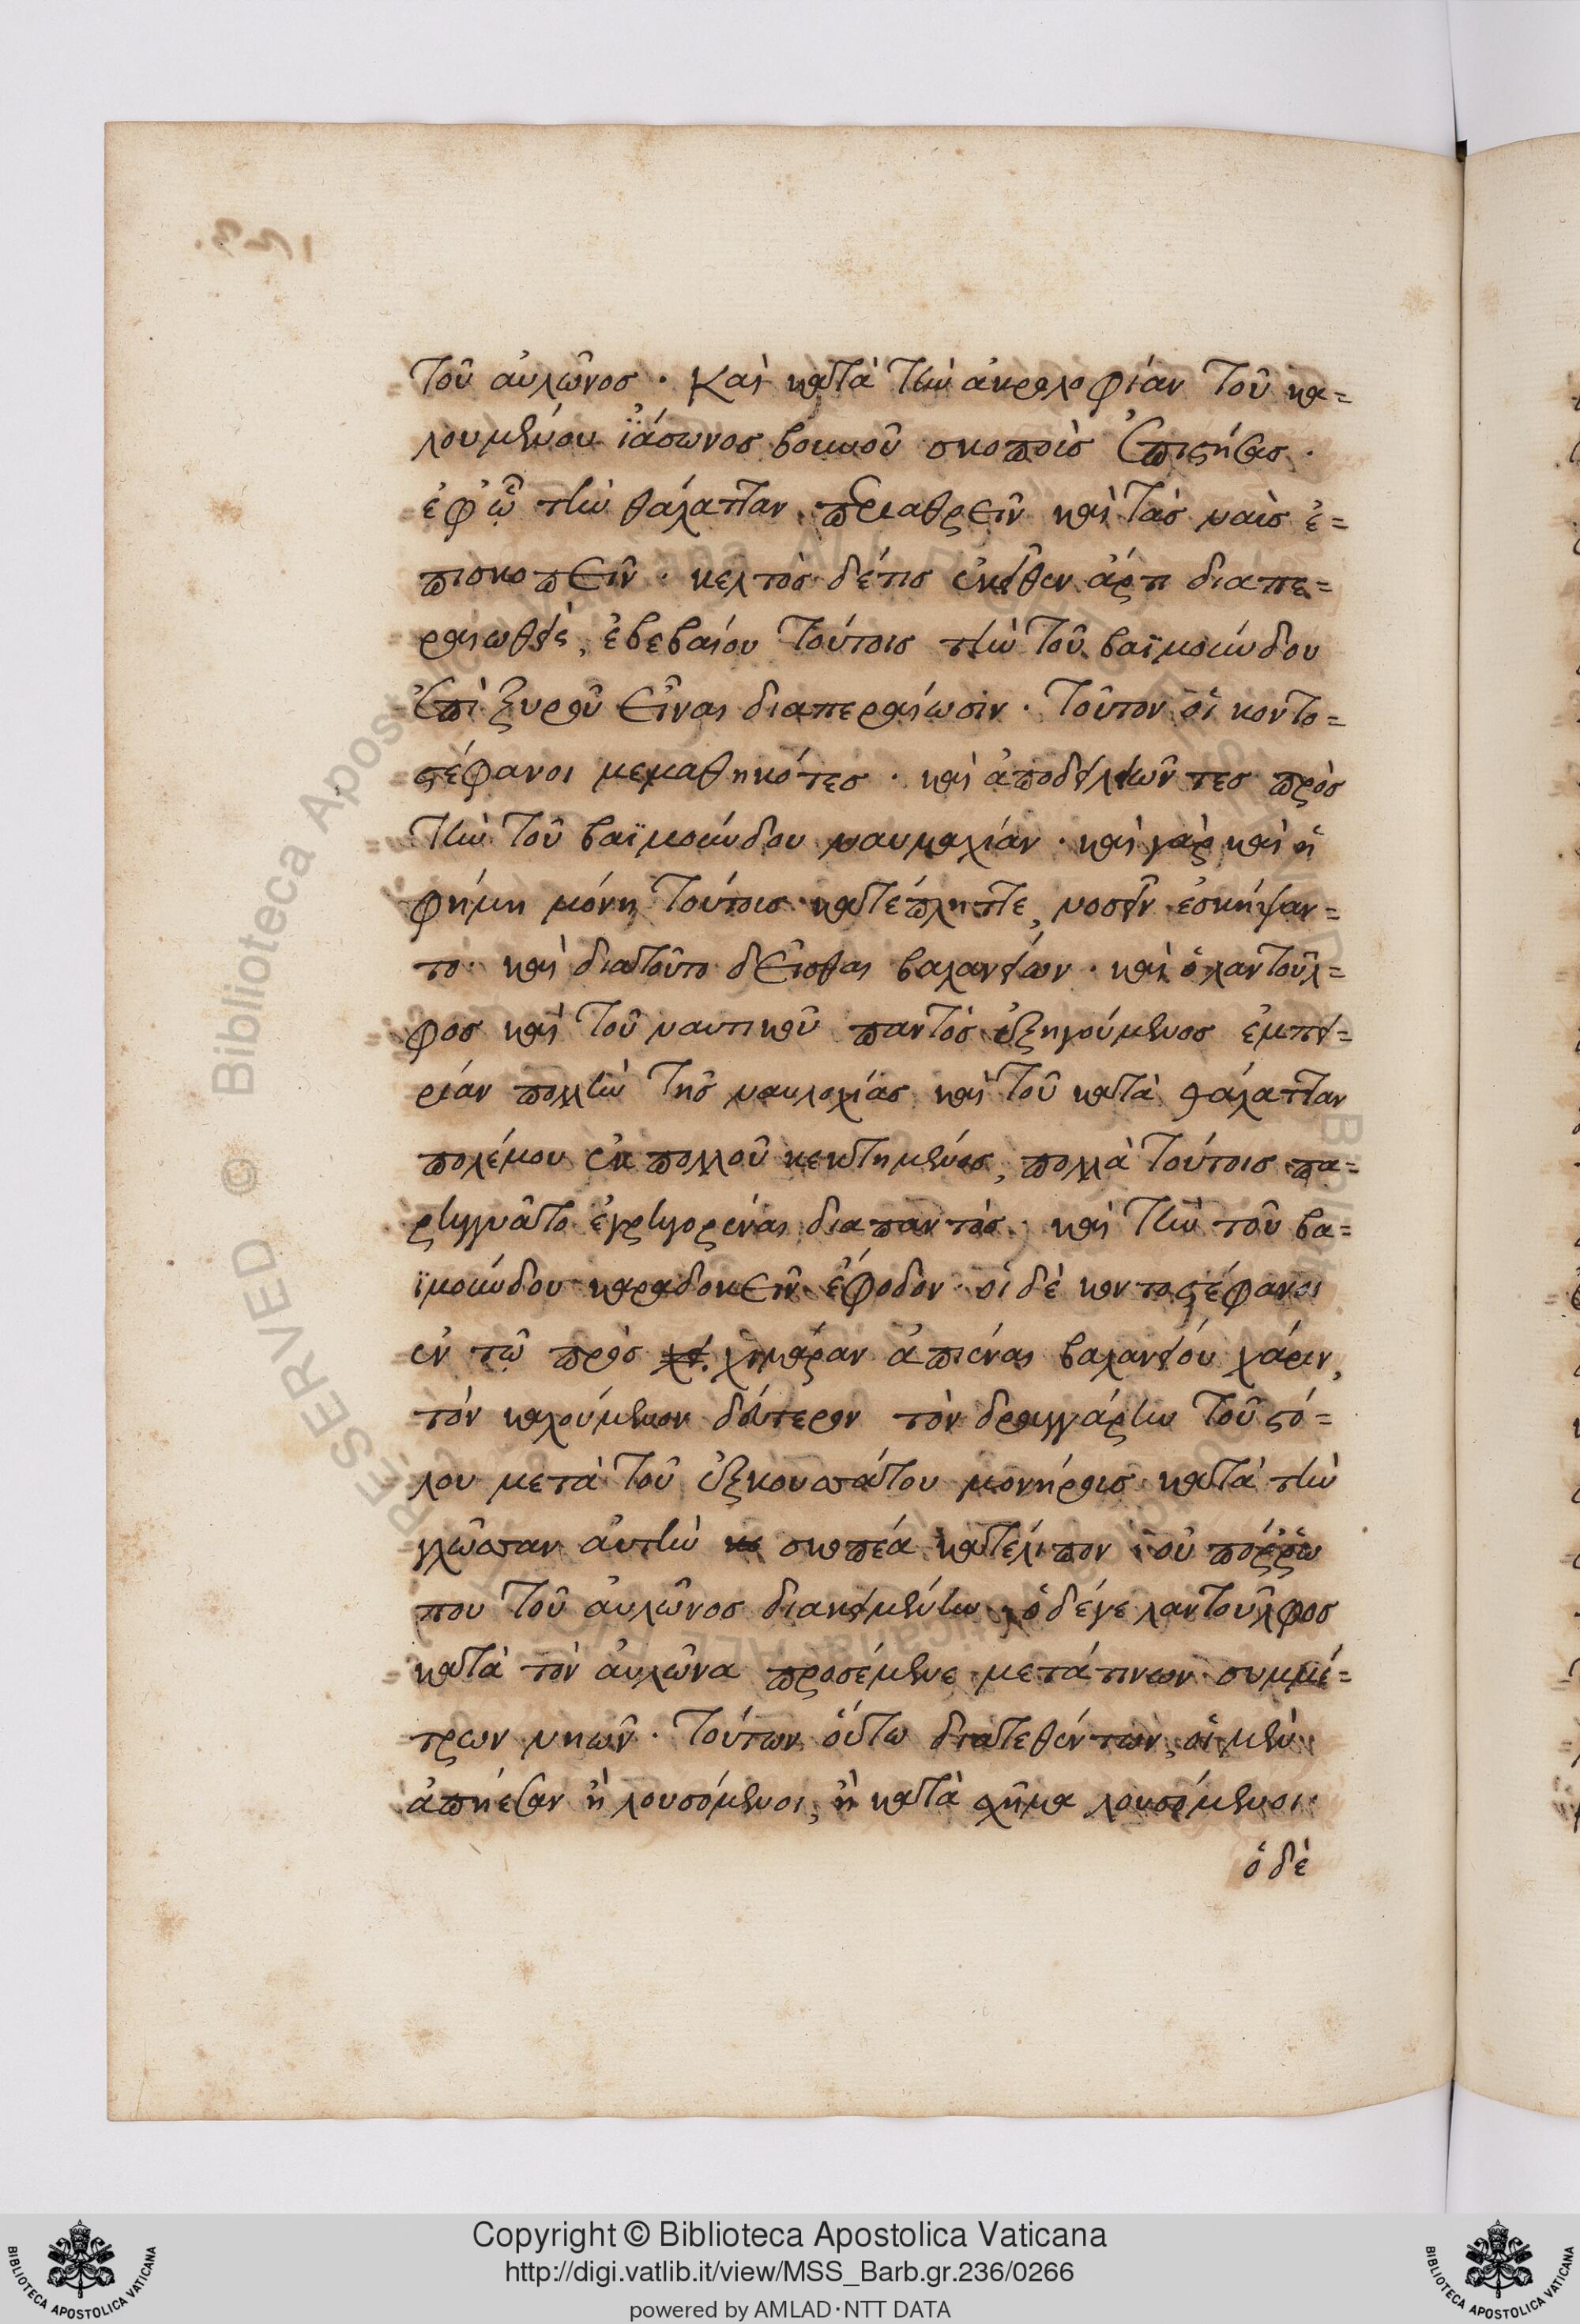 τοῦ αὐλῶνος · Καὶ κατὰ τὴν ἀκρολοφίαν τοῦ κα=
λουμένου ἰάσωνος βουνοῦ σκοποὺς ἐπιστήσας ·
ἐφ' ᾧ τὴν θάλατταν περιαθρεῖν καὶ τὰς ναῦς ἐ=
πισκοπεῖν · κελτὸς δέ τις ἐκεῖθεν ἄρτι διαπε=
ραιωθεὶς, ἐβεβαίου τούτοις τὴν τοῦ βαϊμούνδου
ἐπὶ ξυροῦ εἶναι διαπεραίωσιν · τοῦτον οἱ κοντο=
στέφανοι μεμαθηκότες · καὶ ἀποδειλιῶντες πρὸς
τὴν τοῦ βαϊμούνδου ναυμαχίαν · καὶ γὰρ καὶ ἡ
φήμη μόνη τούτους κατέπληττε, νοσεῖν ἐσκήψαν=
το · καὶ διατοῦτο δεῖσθαι βαλανείων · καὶ ὁ λαντοῦλ=
φος καὶ τοῦ ναυτικοῦ παντὸς ἐξηγούμενος ἐμπει=
ρίαν πολλὴν τῆς ναυλοχίας καὶ τοῦ κατὰ θάλατταν
πολέμου ἐκ πολλοῦ κεκτημένος, πολλὰ τούτοις πα=
ρηγγυᾶτο ἐγρηγορέναι διαπαντός · καὶ τὴν τοῦ βα=
ϊμούνδου καραδοκεῖν ἔφοδον · οἱ δὲ κοντοστέφανοι
ἐν τῷ πρὸς χιμάραν ἀπιέναι βαλανείου χάριν,
τὸν καλούμενον δεύτερον τὸν δρουγγάριον τοῦ στό=
λου μετὰ τοῦ ἐξκουσσάτου μονήρους κατὰ τὴν
γλῶσσαν αὐτὴν σκοπέα κατέλιπον · οὐ πόῤῥω
που τοῦ αὐλῶνος διακειμένην · ὁ δέ γε λαντοῦλφος
κατὰ τὸν αὐλῶνα προσέμενε μετά τινων συμμέ=
τρων νηῶν · τούτων οὕτω διατεθέντων, οἱ μὲν
ἀπῄεσαν ἢ λουσόμενοι, ἢ κατὰ σχῆμα λουσόμενοι
ὁ δὲ
Copyright © Biblioteca Apostolica Vaticana
http://digi.vatlib.it/view/MSS_Barb.gr.236/0266
powered by AMLAD·NTT DATA
BIBLIOTECA APOSTOLICA VATICANA
BIBLIOTECA APOSTOLICA VATICANA